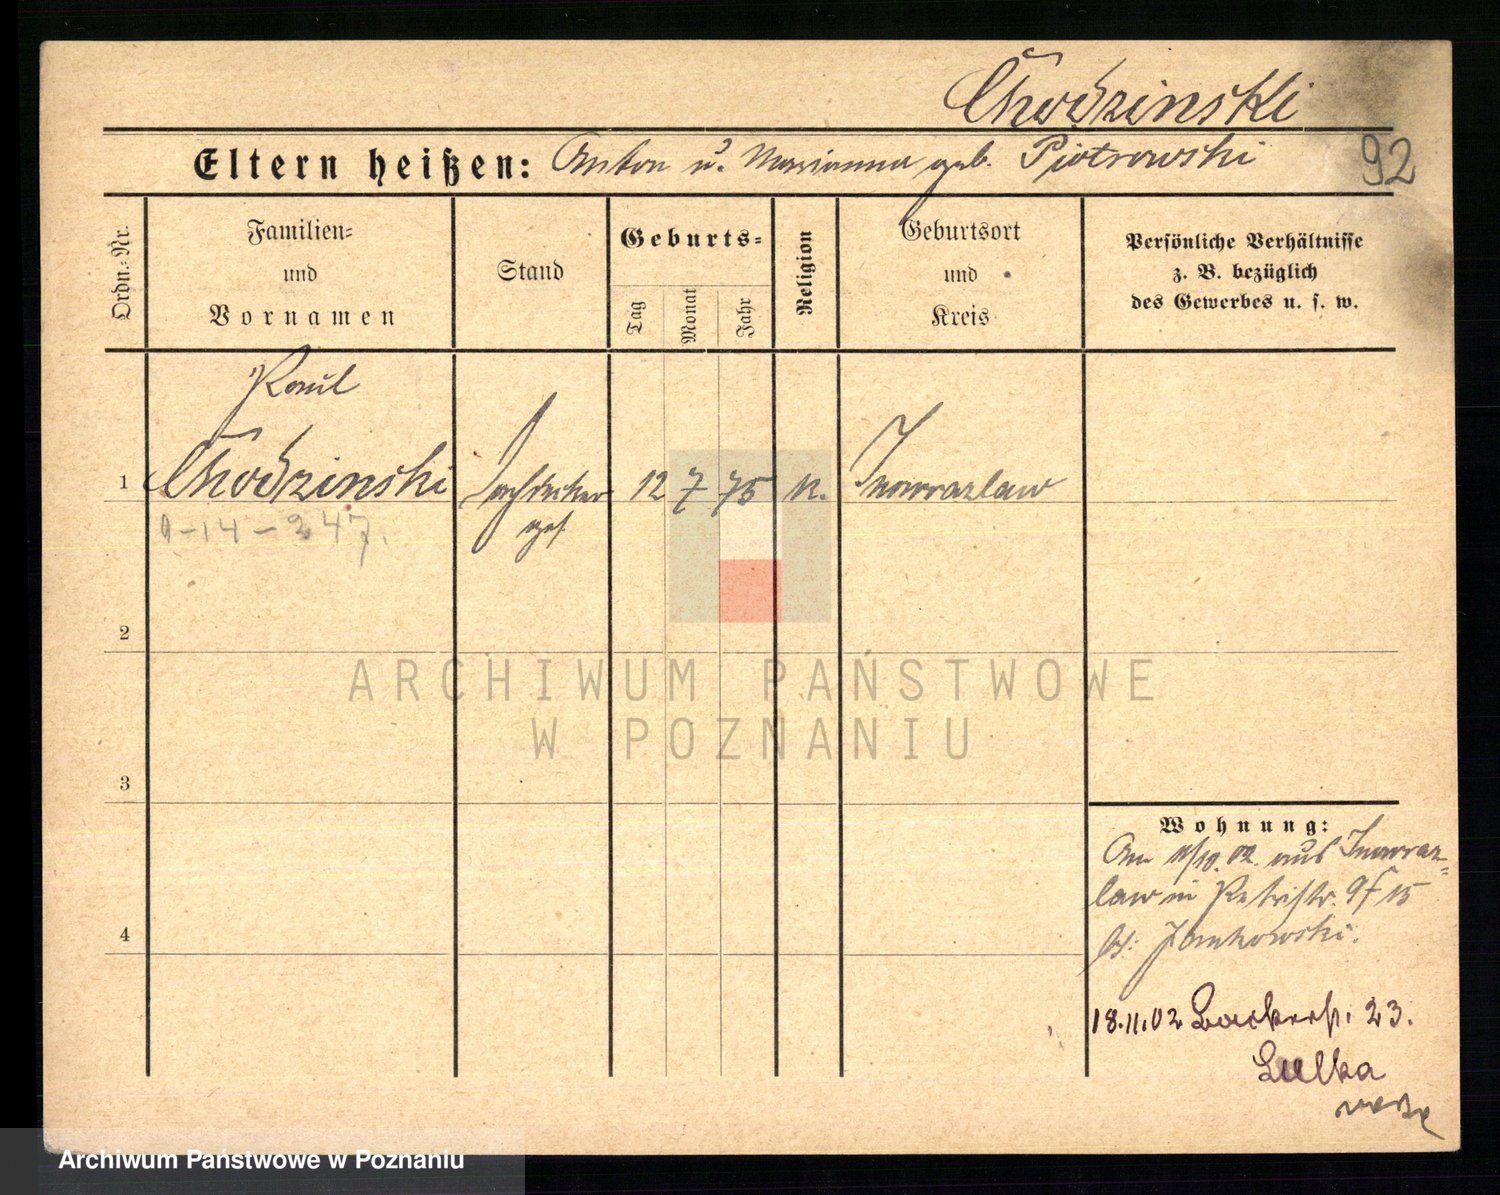 Chodzinski
Eltern heißen: Anton u. Marianna geb. Piotrowski
92
Ordn.=Nr.
Familien=
und
Vornamen
Stand
Geburts=
Tag
Monat
Jahr
Religion
Geburtsort
und
Kreis
Persönliche Verhältnisse
z. B. bezüglich
des Gewerbes u. s. w.
Paul
1 Chodzinski Dachdecker 12 7 75 k. Inowrazlaw
ges.
9-14-247.
2
3
4
Wohnung:
Am 11/10. 02. aus Inowraz=
law in Petristr. 9
b/: Jankowski.
18.11.02 23.
Lulka
ARCHIWUM PAŃSTWOWE
W POZNANIU
Archiwum Państwowe w Poznaniu